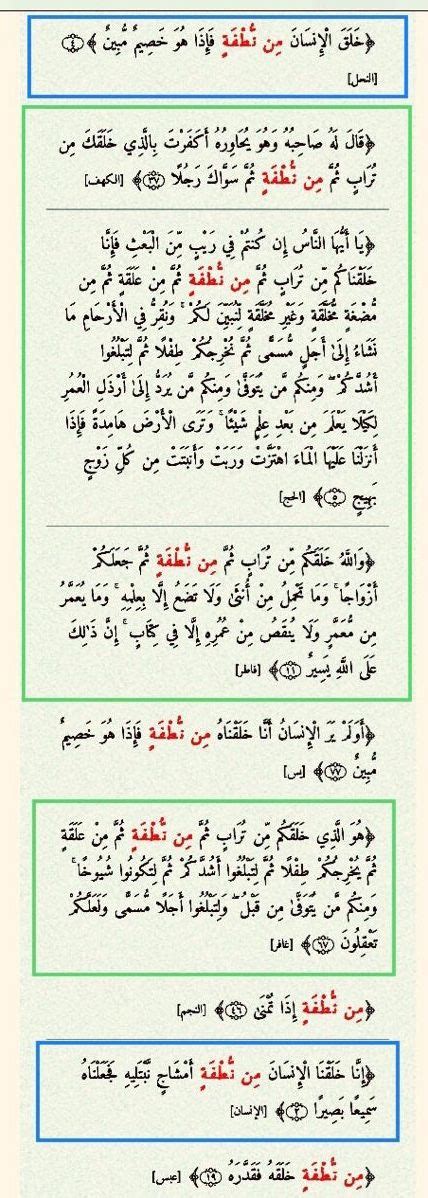 ﴿خَلَقَ الْإِنسَانَ مِن نُّطْفَةٍ فَإِذَا هُوَ خَصِيمٌ مُّبِينٌ ﴾﴿٤﴾
[النحل]
﴿قَالَ لَهُ صَاحِبُهُ وَهُوَ يُحَاوِرُهُ أَكَفَرْتَ بِالَّذِي خَلَقَكَ مِن
تُرَابٍ ثُمَّ مِن نُّطْفَةٍ ثُمَّ سَوَّاكَ رَجُلًا ﴿٣٧﴾﴾ [الكهف]
﴿يَا أَيُّهَا النَّاسُ إِن كُنتُمْ فِي رَيْبٍ مِّنَ الْبَعْثِ فَإِنَّا
خَلَقْنَاكُم مِّن تُرَابٍ ثُمَّ مِن نُّطْفَةٍ ثُمَّ مِنْ عَلَقَةٍ ثُمَّ مِن
مُّضْغَةٍ مُّخَلَّقَةٍ وَغَيْرِ مُخَلَّقَةٍ لِّنُبَيِّنَ لَكُمْ ۚ وَنُقِرُّ فِي الْأَرْحَامِ مَا
نَشَاءُ إِلَىٰ أَجَلٍ مُّسَمًّى ثُمَّ نُخْرِجُكُمْ طِفْلًا ثُمَّ لِتَبْلُغُوا
أَشُدَّكُمْ ۖ وَمِنكُم مَّن يُتَوَفَّىٰ وَمِنكُم مَّن يُرَدُّ إِلَىٰ أَرْذَلِ الْعُمُرِ
لِكَيْلَا يَعْلَمَ مِن بَعْدِ عِلْمٍ شَيْئًا ۚ وَتَرَى الْأَرْضَ هَامِدَةً فَإِذَا
أَنزَلْنَا عَلَيْهَا الْمَاءَ اهْتَزَّتْ وَرَبَتْ وَأَنبَتَتْ مِن كُلِّ زَوْجٍ
بَهِيجٍ ﴿٥﴾﴾ [الحج]
﴿وَاللَّهُ خَلَقَكُم مِّن تُرَابٍ ثُمَّ مِن نُّطْفَةٍ ثُمَّ جَعَلَكُمْ
أَزْوَاجًا ۚ وَمَا تَحْمِلُ مِنْ أُنثَىٰ وَلَا تَضَعُ إِلَّا بِعِلْمِهِ ۚ وَمَا يُعَمَّرُ
مِن مُّعَمَّرٍ وَلَا يُنقَصُ مِنْ عُمُرِهِ إِلَّا فِي كِتَابٍ ۚ إِنَّ ذَٰلِكَ
عَلَى اللَّهِ يَسِيرٌ ﴿١١﴾﴾ [فاطر]
﴿أَوَلَمْ يَرَ الْإِنسَانُ أَنَّا خَلَقْنَاهُ مِن نُّطْفَةٍ فَإِذَا هُوَ خَصِيمٌ
مُّبِينٌ ﴿٧٧﴾﴾ [يس]
﴿هُوَ الَّذِي خَلَقَكُم مِّن تُرَابٍ ثُمَّ مِن نُّطْفَةٍ ثُمَّ مِنْ عَلَقَةٍ
ثُمَّ يُخْرِجُكُمْ طِفْلًا ثُمَّ لِتَبْلُغُوا أَشُدَّكُمْ ثُمَّ لِتَكُونُوا شُيُوخًا ۚ
وَمِنكُم مَّن يُتَوَفَّىٰ مِن قَبْلُ ۖ وَلِتَبْلُغُوا أَجَلًا مُّسَمًّى وَلَعَلَّكُمْ
تَعْقِلُونَ ﴿٦٧﴾﴾ [غافر]
﴿مِن نُّطْفَةٍ إِذَا تُمْنَىٰ ﴿٤٦﴾﴾ [النجم]
﴿إِنَّا خَلَقْنَا الْإِنسَانَ مِن نُّطْفَةٍ أَمْشَاجٍ نَّبْتَلِيهِ فَجَعَلْنَاهُ
سَمِيعًا بَصِيرًا ﴿٢﴾﴾ [الإنسان]
﴿مِن نُّطْفَةٍ خَلَقَهُ فَقَدَّرَهُ ﴿١٩﴾﴾ [عبس]